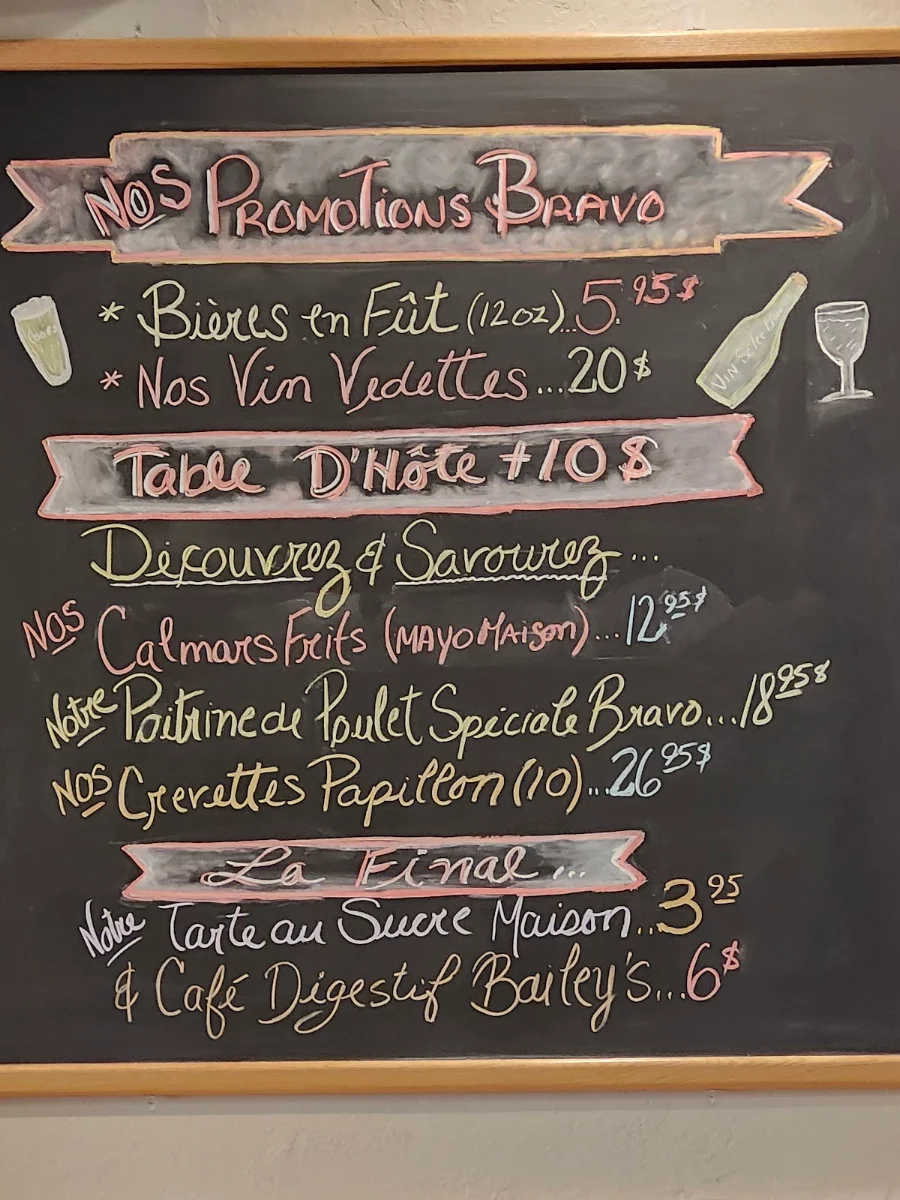 Nos Promotions Bravo
* Bières en Fût (12 oz)...5.95$
Coors
* Nos Vin Vedettes...20$
Table D'Hôte +10$
Découvrez & Savourez...
Nos Calmars Frits (Mayo Maison)...12.95$
Notre Poitrine de Poulet Spéciale Bravo...18.95$
Nos Crevettes Papillon (10)...26.95$
La Final...
Notre Tarte au Sucre Maison...3.95
& Café Digestif Bailey's...6$